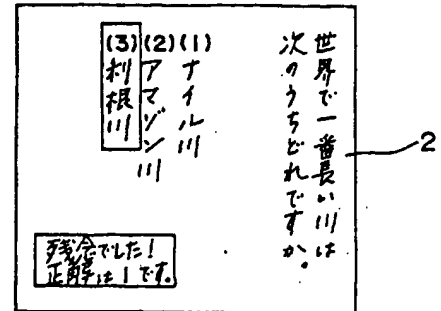 世界で一番長い川は
次のうちどれですか。
(1)ナイル川
(2)アマゾン川
(3)利根川
残念でした!
正解は1です。
2